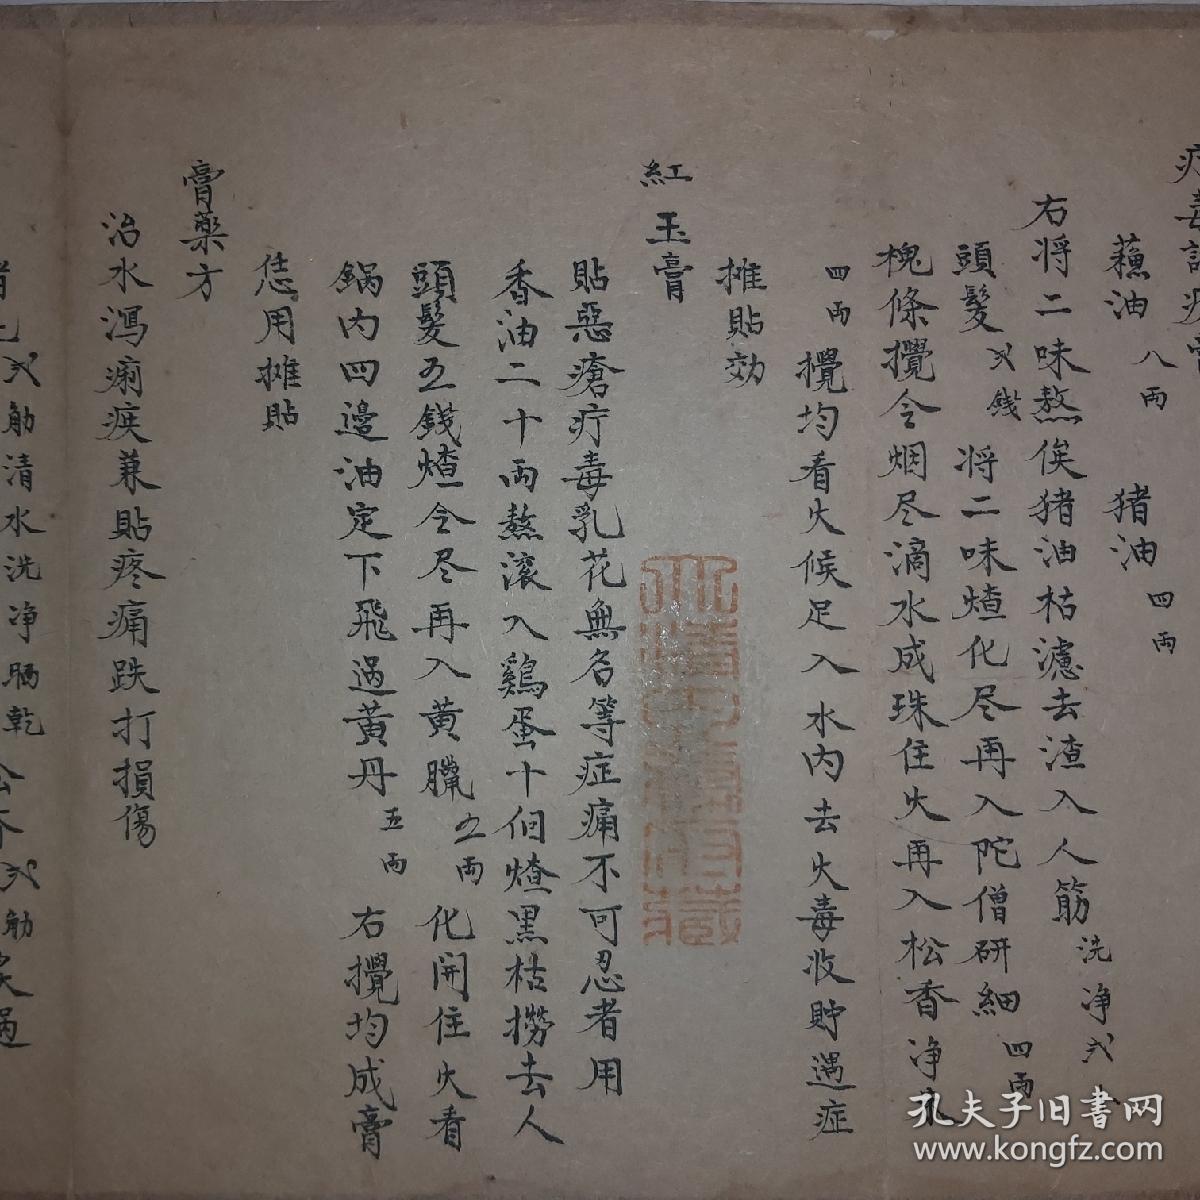 蘓油 八両 猪油 四両
右将二味熬俟猪油枯濾去渣入人筋 洗净
頭髮 弍錢 将二味煠化尽再入陀僧研細 四両
槐條攪令烟尽滴水成珠住火再入松香净
四両 攪均看火候足入水内去火毒收貯遇症
摊貼効
紅玉膏
貼惡瘡疔毒乳花無名等症痛不可忍者用
香油二十両熬滚入鷄蛋十個煠黑枯撈去人
頭髮五錢煠令尽再入黄臘 五両 化開住火看
鍋内四邊油定下飛過黄丹 五両 右攪均成膏
恁用摊貼
膏藥方
治水瀉痢疾兼貼疼痛跌打損傷
弍觔清水洗净晒乾 弍觔
孔夫子旧书网
www.kongfz.com